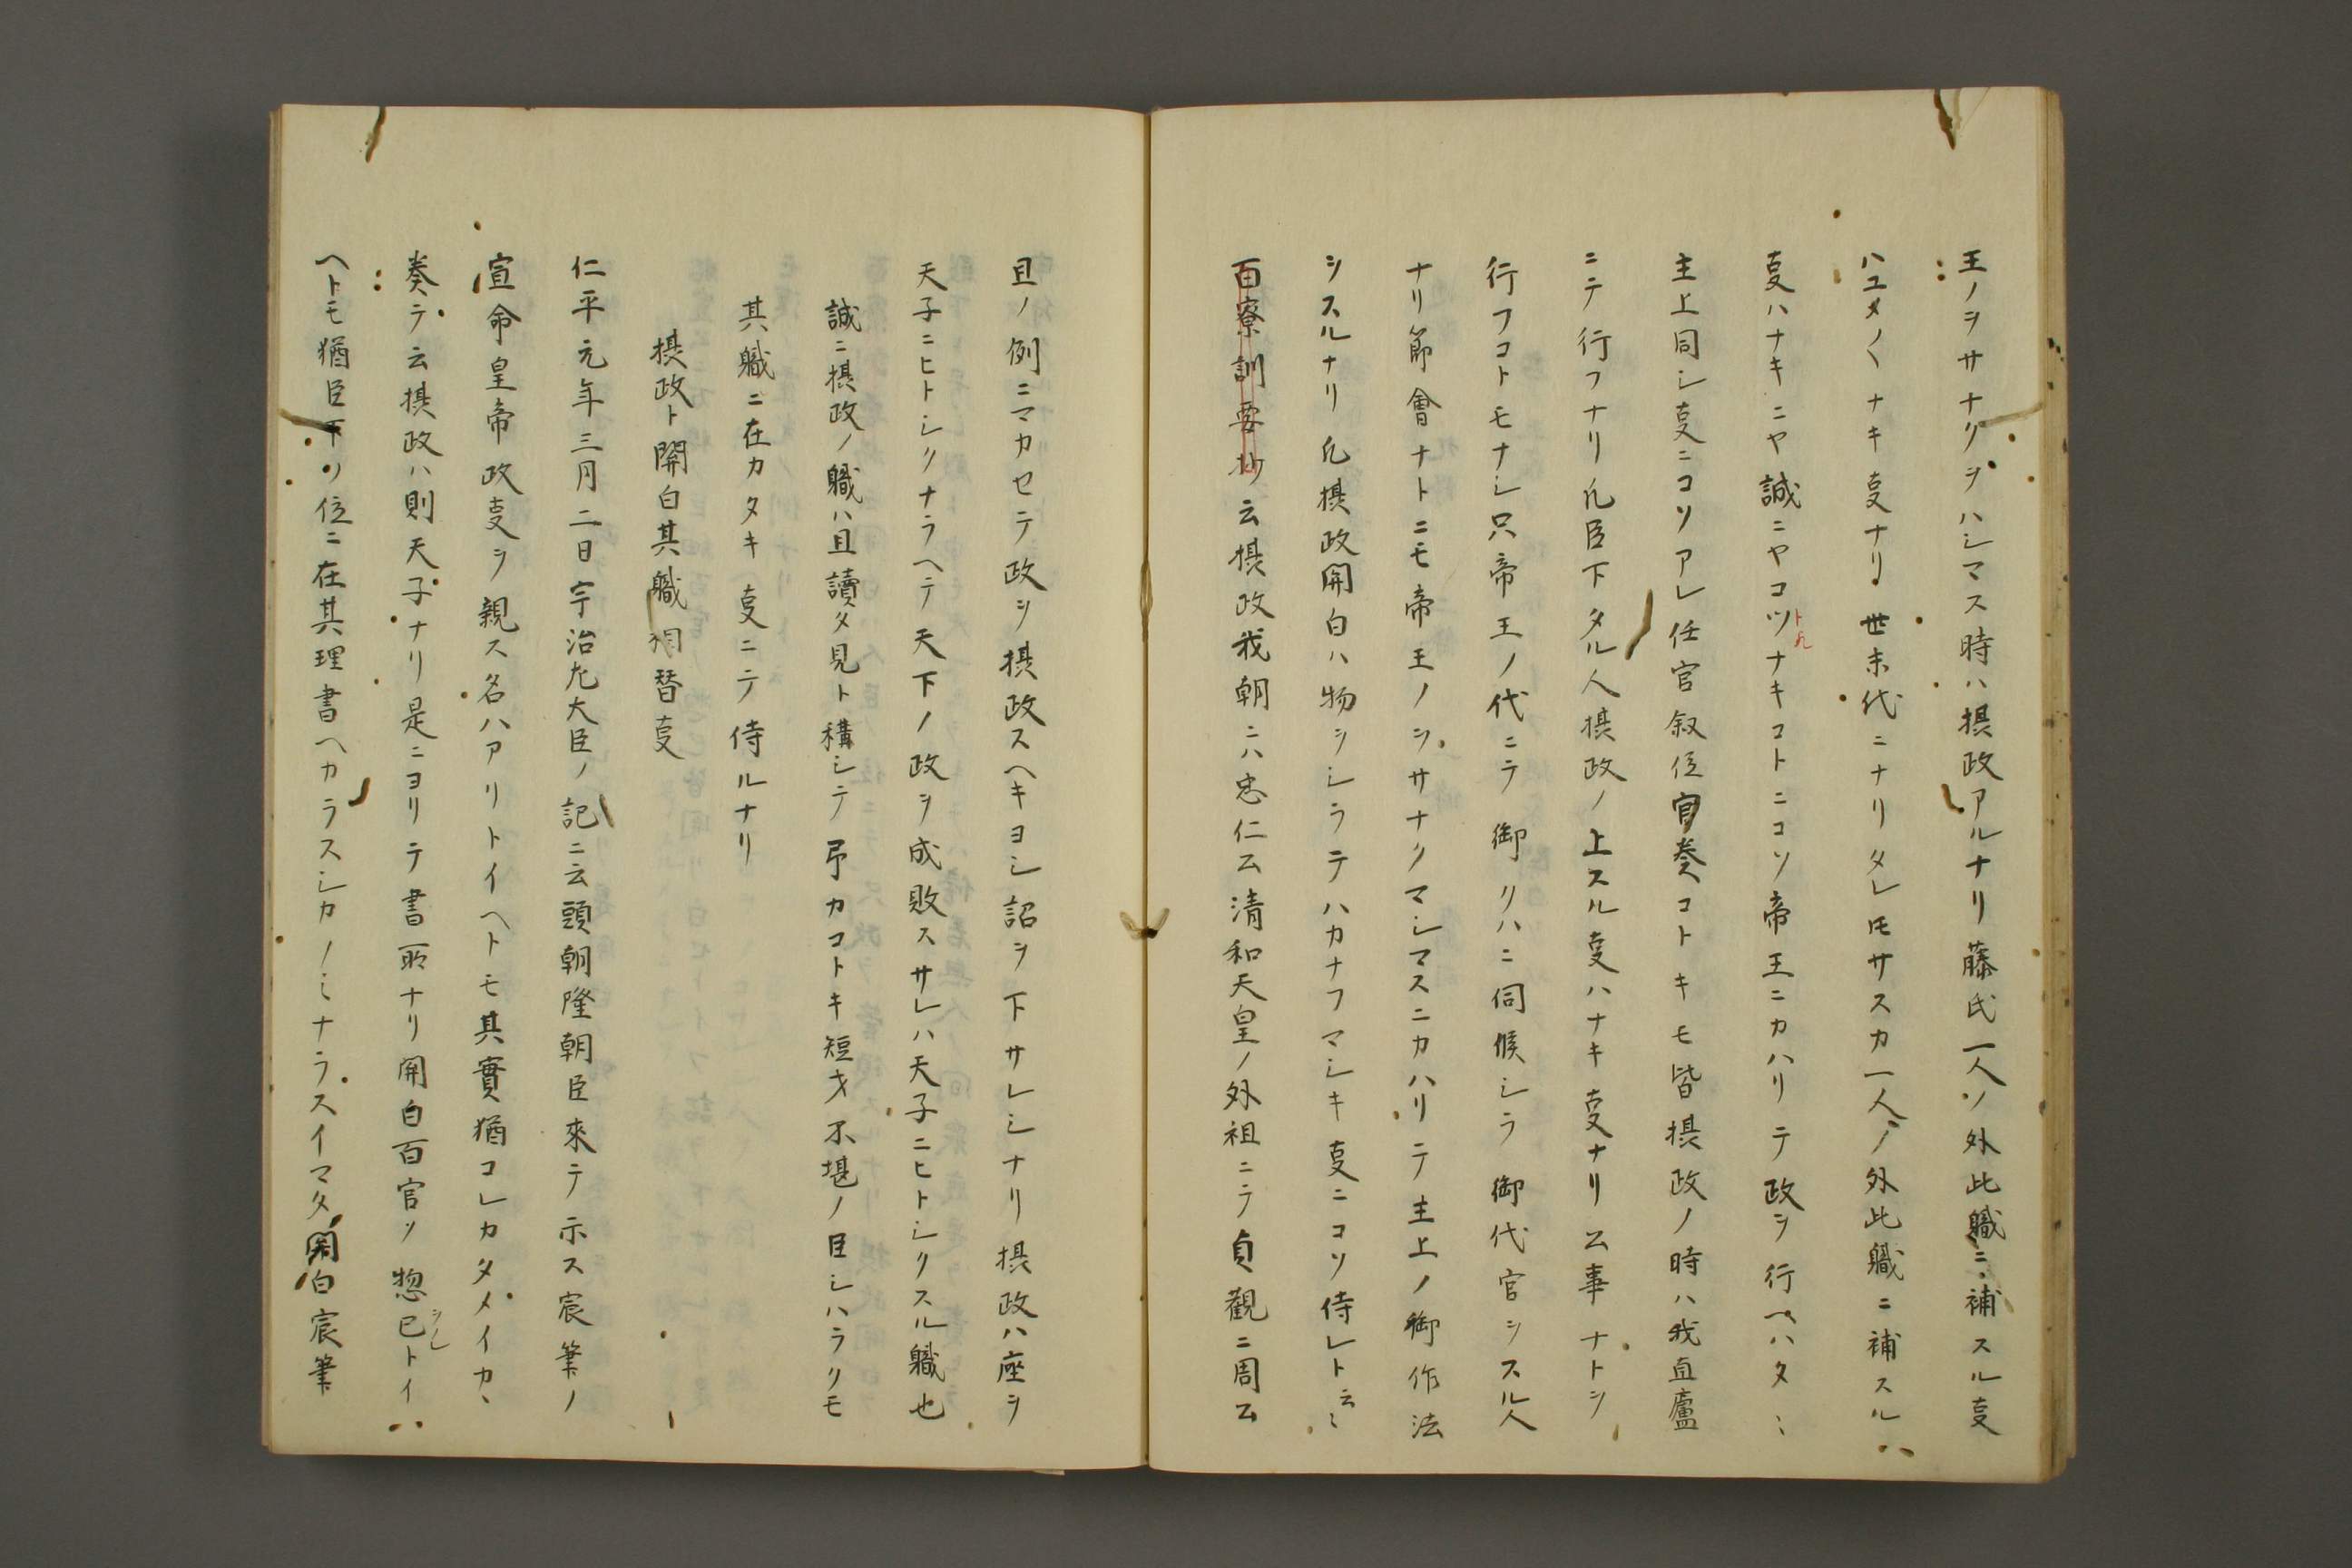 王ノヲサナクヲハシマス時ハ摂政アルナリ藤氏一人ノ外此職ニ補スル叓
ハユメ〱ナキ叓ナリ世末代ニナリタレ𪜈サスカ一人ノ外此職ニ補スル
叓ハナキニヤ誠ニヤコツナキコトニコソ帝王ニカハリテ政ヲ行ヘハタヽ
トカ
主上同シ叓ニコソアレ任官叙位官奏コトキモ皆摂政ノ時ハ我直廬
ニテ行フナリ凡臣下タル人摂政ノ上スル叓ハナキ叓ナリ公事ナトヲ
行フコトモナシ只帝王ノ代ニテ御クハニ伺候シテ御代官ヲスル人
ナリ節會ナトニモ帝王ノヲサナクマシマスニカハリテ主上ノ御作法
ヲスルナリ凡摂政関白ハ物ヲシラテハカナフマシキ叓ニコソ侍レト云〻
百寮訓要抄云摂政我朝ニハ忠仁公清和天皇ノ外祖ニテ貞觀ニ周公
旦ノ例ニマカセテ政ヲ摂政スヘキヨシ詔ヲ下サレシナリ摂政ハ座ヲ
天子ニヒトシクナラヘテ天下ノ政ヲ成敗スサレハ天子ニヒトシクスル職也
誠ニ摂政ノ職ハ且讀タ見ト構シテ弔カコトキ短才不堪ノ臣シハラクモ
其職ニ在カタキ叓ニテ侍ルナリ
摂政ト関白其職相替叓
仁平元年三月二日宇治左大臣ノ記ニ云頭朝隆朝臣來テ示ス宸筆ノ
宣命皇帝政叓ヲ親ス名ハアリトイヘトモ其實猶コレカタメイカヽ
奏テ云摂政ハ則天子ナリ是ニヨリテ書所ナリ関白百官ヲ惣已トイ
ヲレ
ヘトモ猶臣下ノ位ニ在其理書ヘカラスシカノミナラスイマタ関白宸筆